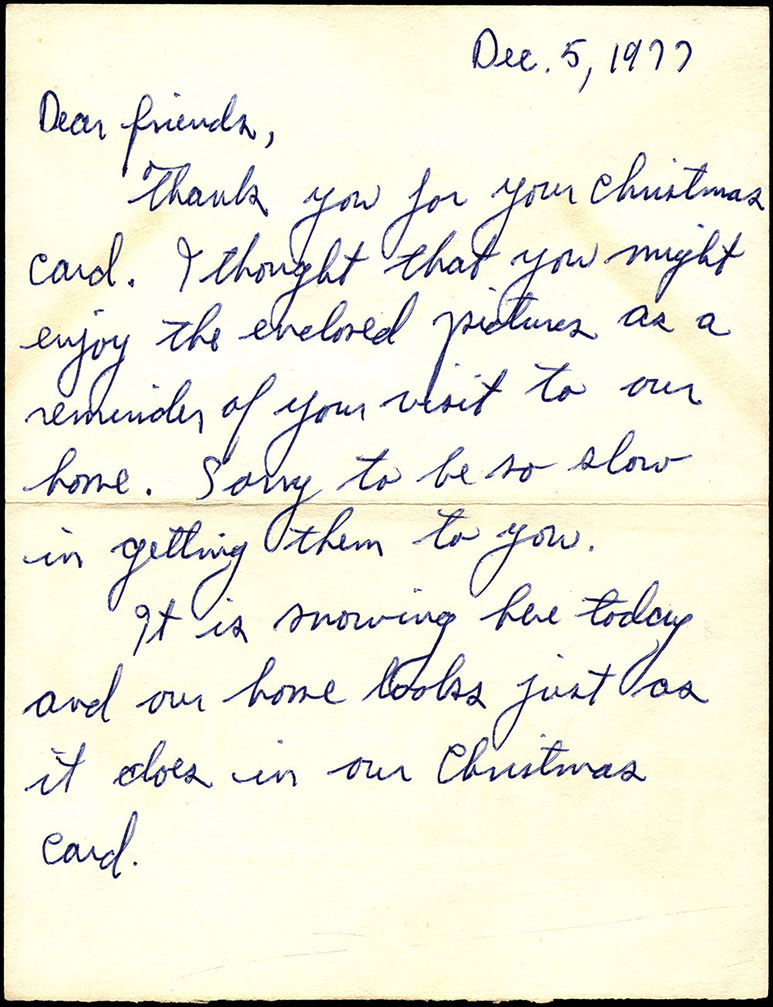 Dec. 5, 1977
Dear friends,
Thanks you for your Christmas
card. I thought that you might
enjoy the enclosed pictures as a
reminder of your visit to our
home. Sorry to be so slow
in getting them to you.
It is snowing here today
and our home looks just as
it does in our Christmas
card.